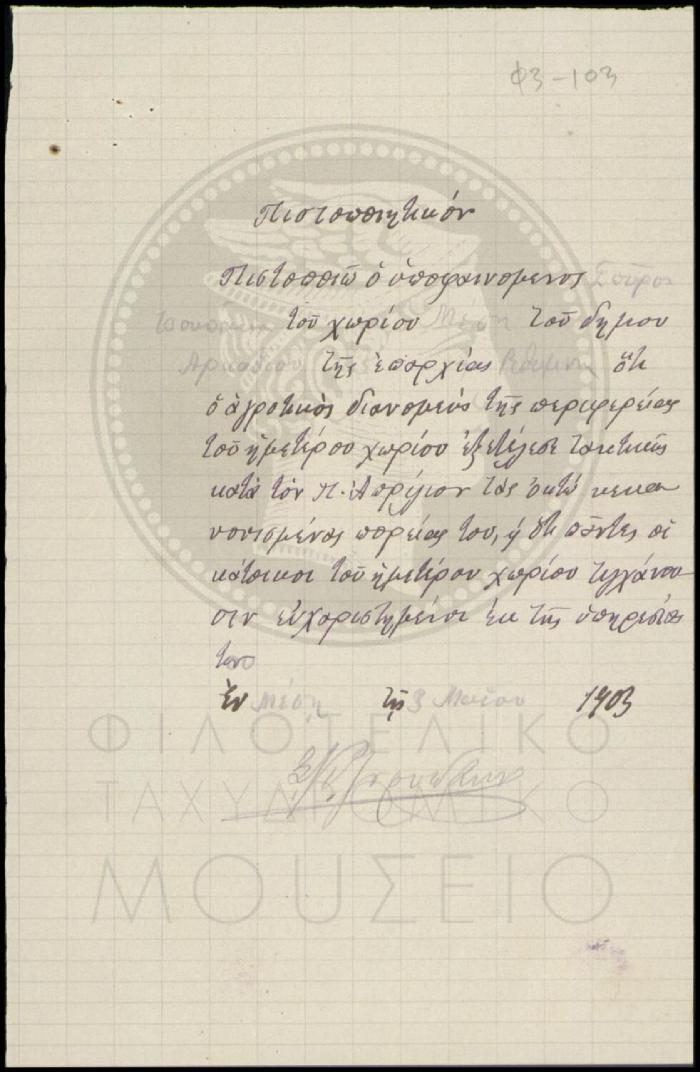 Φ3-103
Πιστοποιητικόν
Πιστοποιῶ ὁ ὑποφαινόμενος Σπῦρος
τοῦ χωρίου Μέση τοῦ δήμου
Αρκαδίου τῆς ἐπαρχίας Ρεθύμνης ὅτι
ὁ ἀγροτικὸς διανομεὺς τῆς περιφερείας
τοῦ ἡμετέρου χωρίου ἐξετέλεσε τακτικῶς
κατὰ τὸν π. Ἀπρίλιον τὰς ὀκτὼ κεκα
νονισμένας πορείας του, ἡ δὲ πάντες οἱ
κάτοικοι τοῦ ἡμετέρου χωρίου τυγχάνου
σιν εὐχαριστημένοι ἐκ τῆς ὑπηρεσίας
του
Ἐν Μέση τῇ 3 Μαΐου 1903
ΦΙΛΟΤΕΛΙΚΟ
ΤΑΧΥΔΡΟΜΙΚΟ
ΜΟΥΣΕΙΟ